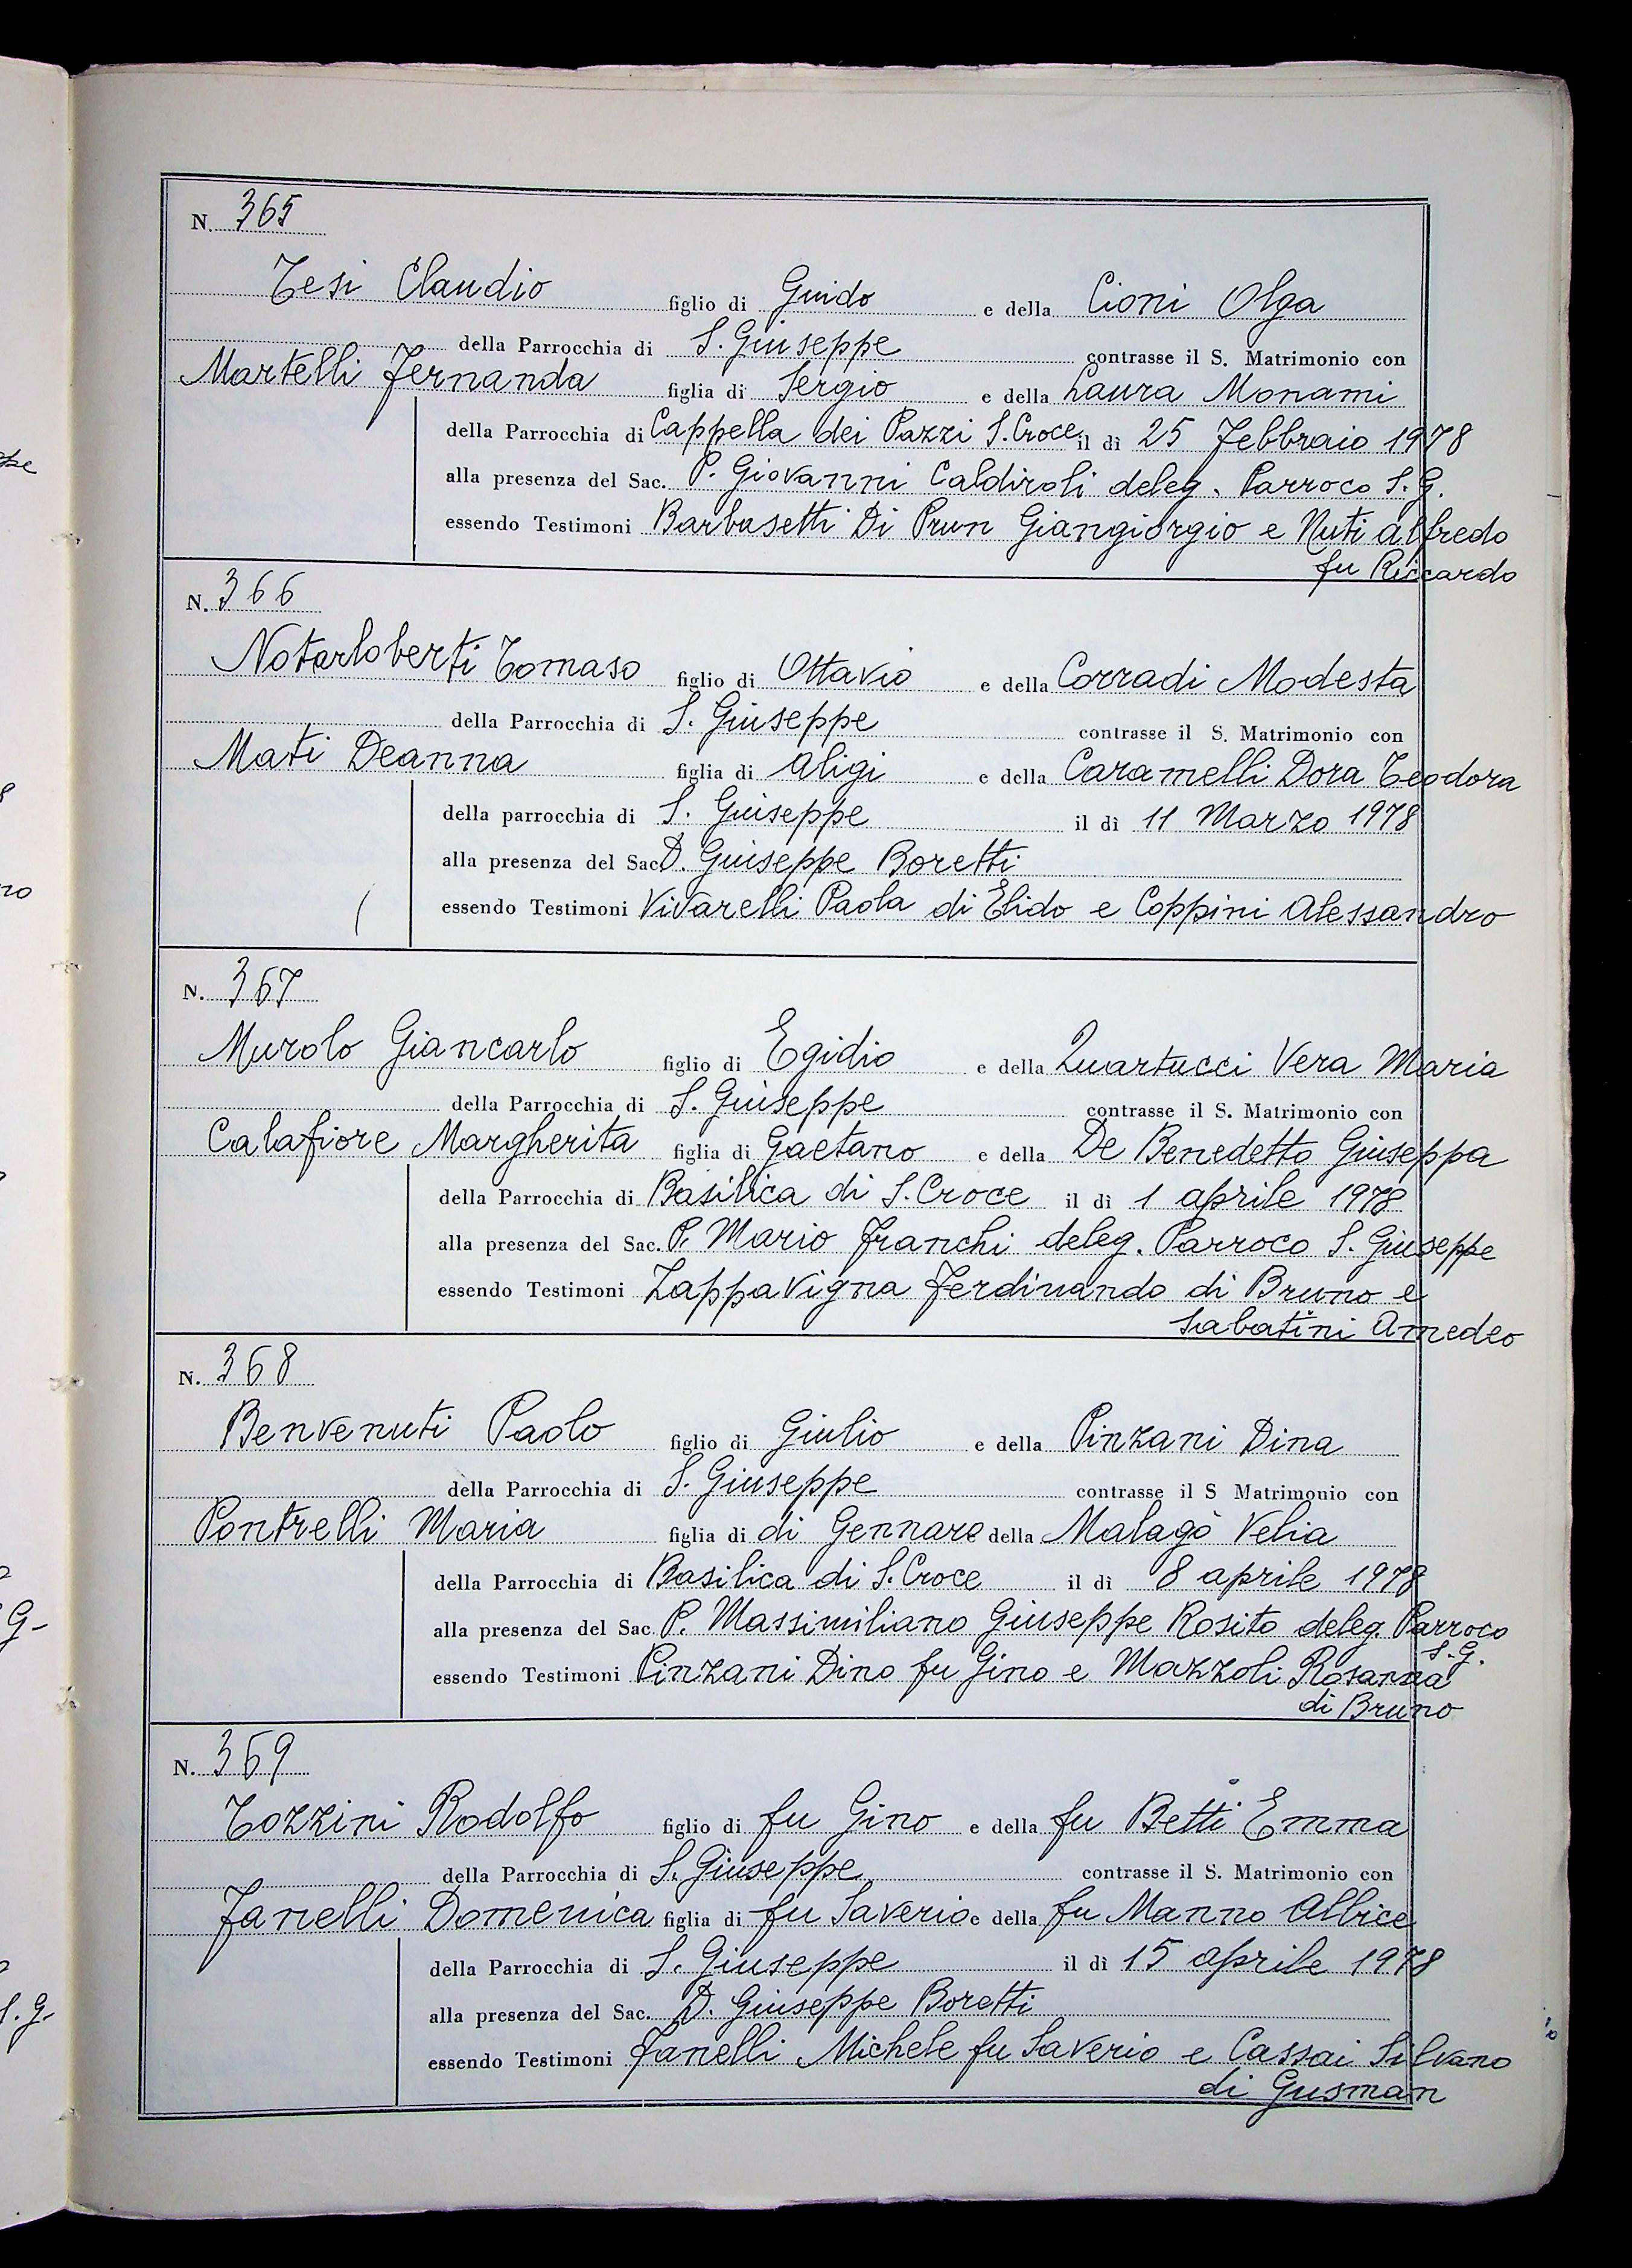 N. 365
Tesi Claudio figlio di Guido e della Cioni Olga
della Parrocchia di S. Giuseppe contrasse il S. Matrimonio con
Martelli Fernanda figlia di Sergio e della Laura Monami
della Parrocchia di Cappella dei Pazzi S. Croce il dì 25 Febbraio 1978
alla presenza del Sac. P. Giovanni Caldiroli deleg. Parroco S. G.
essendo Testimoni Barbasetti Di Prun Giangiorgio e Nuti Alfredo
fu Riccardo
N. 366
Notarloberti Tomaso figlio di Ottavio e della Corradi Modesta
della Parrocchia di S. Giuseppe contrasse il S. Matrimonio con
Mati Deanna figlia di Aligi e della Caramelli Dora Teodora
della parrocchia di S. Giuseppe il dì 11 Marzo 1978
alla presenza del Sac D. Giuseppe Boretti
essendo Testimoni Vivarelli Paola di Elido e Coppini Alessandro
N. 367
Murolo Giancarlo figlio di Egidio e della Quartucci Vera Maria
della Parrocchia di S. Giuseppe contrasse il S. Matrimonio con
Calafiore Margherita figlia di Gaetano e della De Benedetto Giuseppa
della Parrocchia di Basilica di S. Croce il dì 1 aprile 1978
alla presenza del Sac. P. Mario Franchi deleg. Parroco S. Giuseppe
essendo Testimoni Zappavigna Ferdinando di Bruno e
Sabatini Amedeo
N. 368
Benvenuti Paolo figlio di Giulio e della Pinzani Dina
della Parrocchia di S. Giuseppe contrasse il S Matrimonio con
Pontrelli Maria figlia di di Gennaro della Malagò Velia
della Parrocchia di Basilica di S. Croce il dì 8 aprile 1978
alla presenza del Sac P. Massimiliano Giuseppe Rosito deleg. Parroco
S. G.
essendo Testimoni Pinzani Dino fu Gino e Mazzoli Rosanna
di Bruno
N. 369
Tozzini Rodolfo figlio di fu Gino e della fu Betti Emma
della Parrocchia di S. Giuseppe contrasse il S. Matrimonio con
Fanelli Domenica figlia di fu Saverio e della fu Manno Albice
della Parrocchia di S. Giuseppe il dì 15 aprile 1978
alla presenza del Sac. D. Giuseppe Boretti
essendo Testimoni Fanelli Michele fu Saverio e Cassai Silvano
di Gusman